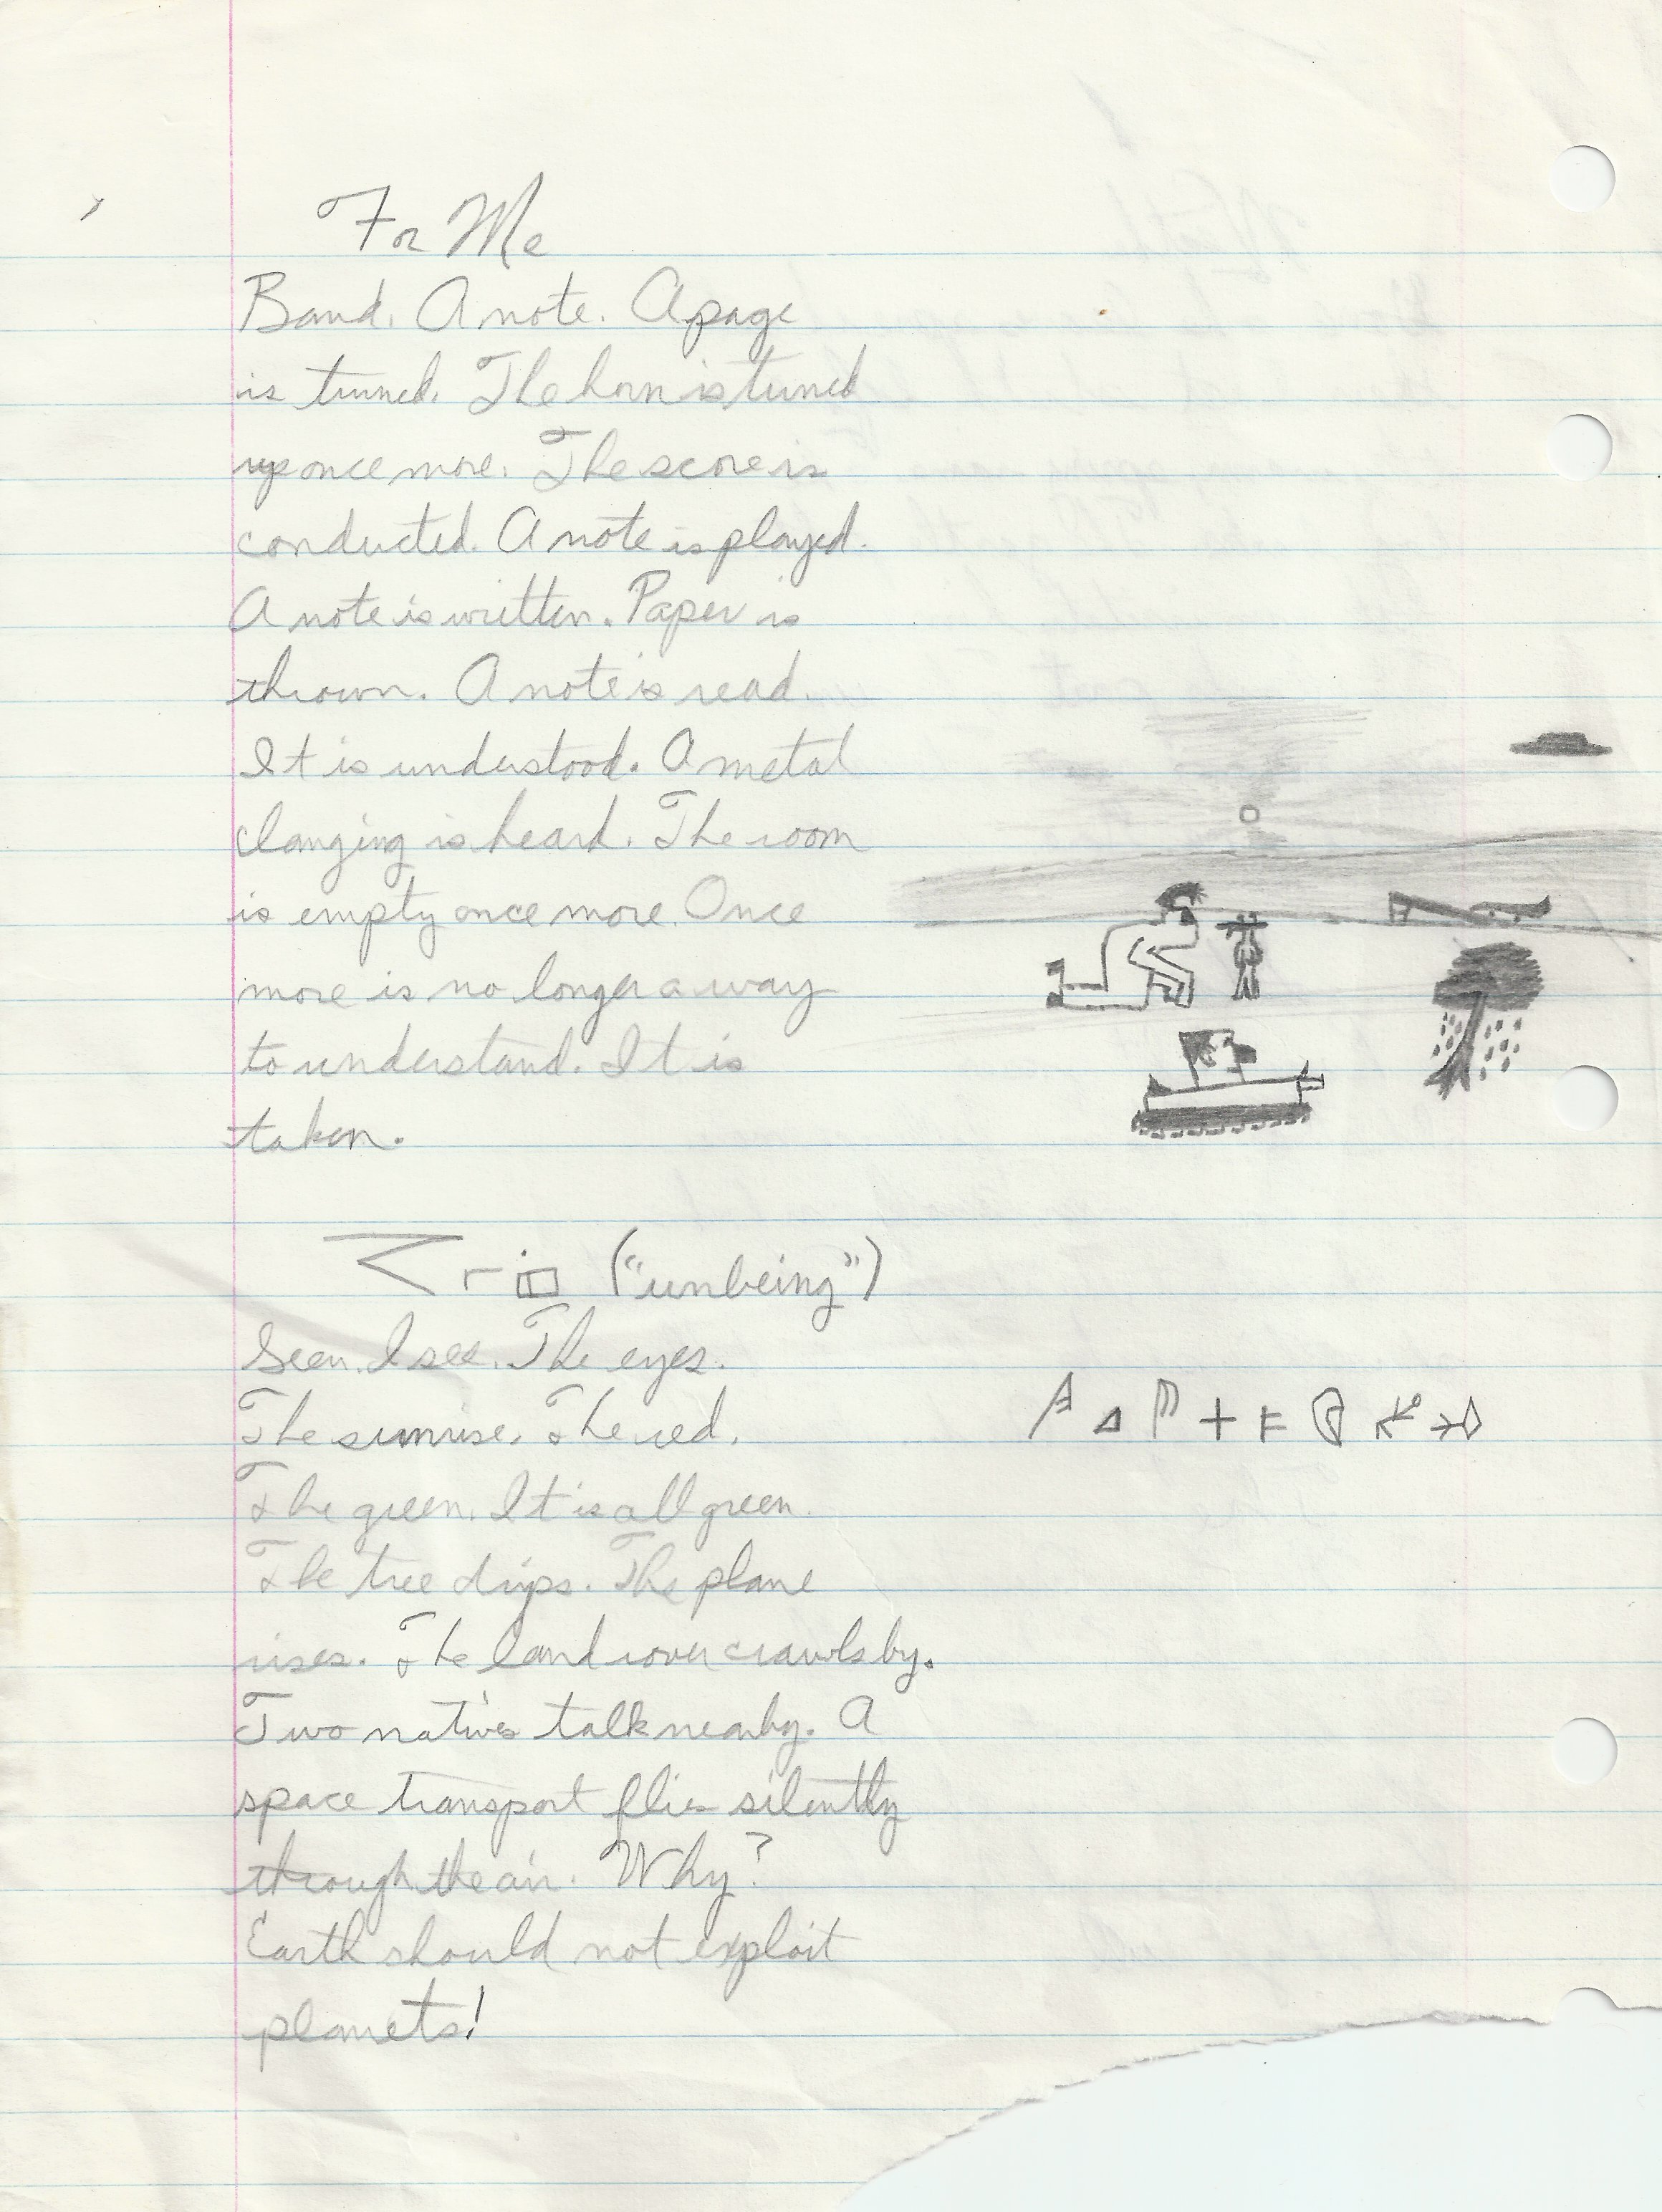 For Me
Band. A note. A page
is turned. The horn is tuned
up once more. The score is
conducted. A note is played.
A note is written. Paper is
thrown. A note is read.
It is understood. A metal
clanging is heard. The room
is empty once more. Once
more is no longer a way
to understand. It is
taken.
("unbeing")
Seen. I see. The eyes.
The sunrise. The red.
The green. It is all green.
The tree drips. The plane
rises. The land rover crawls by.
Two natives talk nearby. A
space transport flies silently
through the air. Why?
Earth should not exploit
planets!